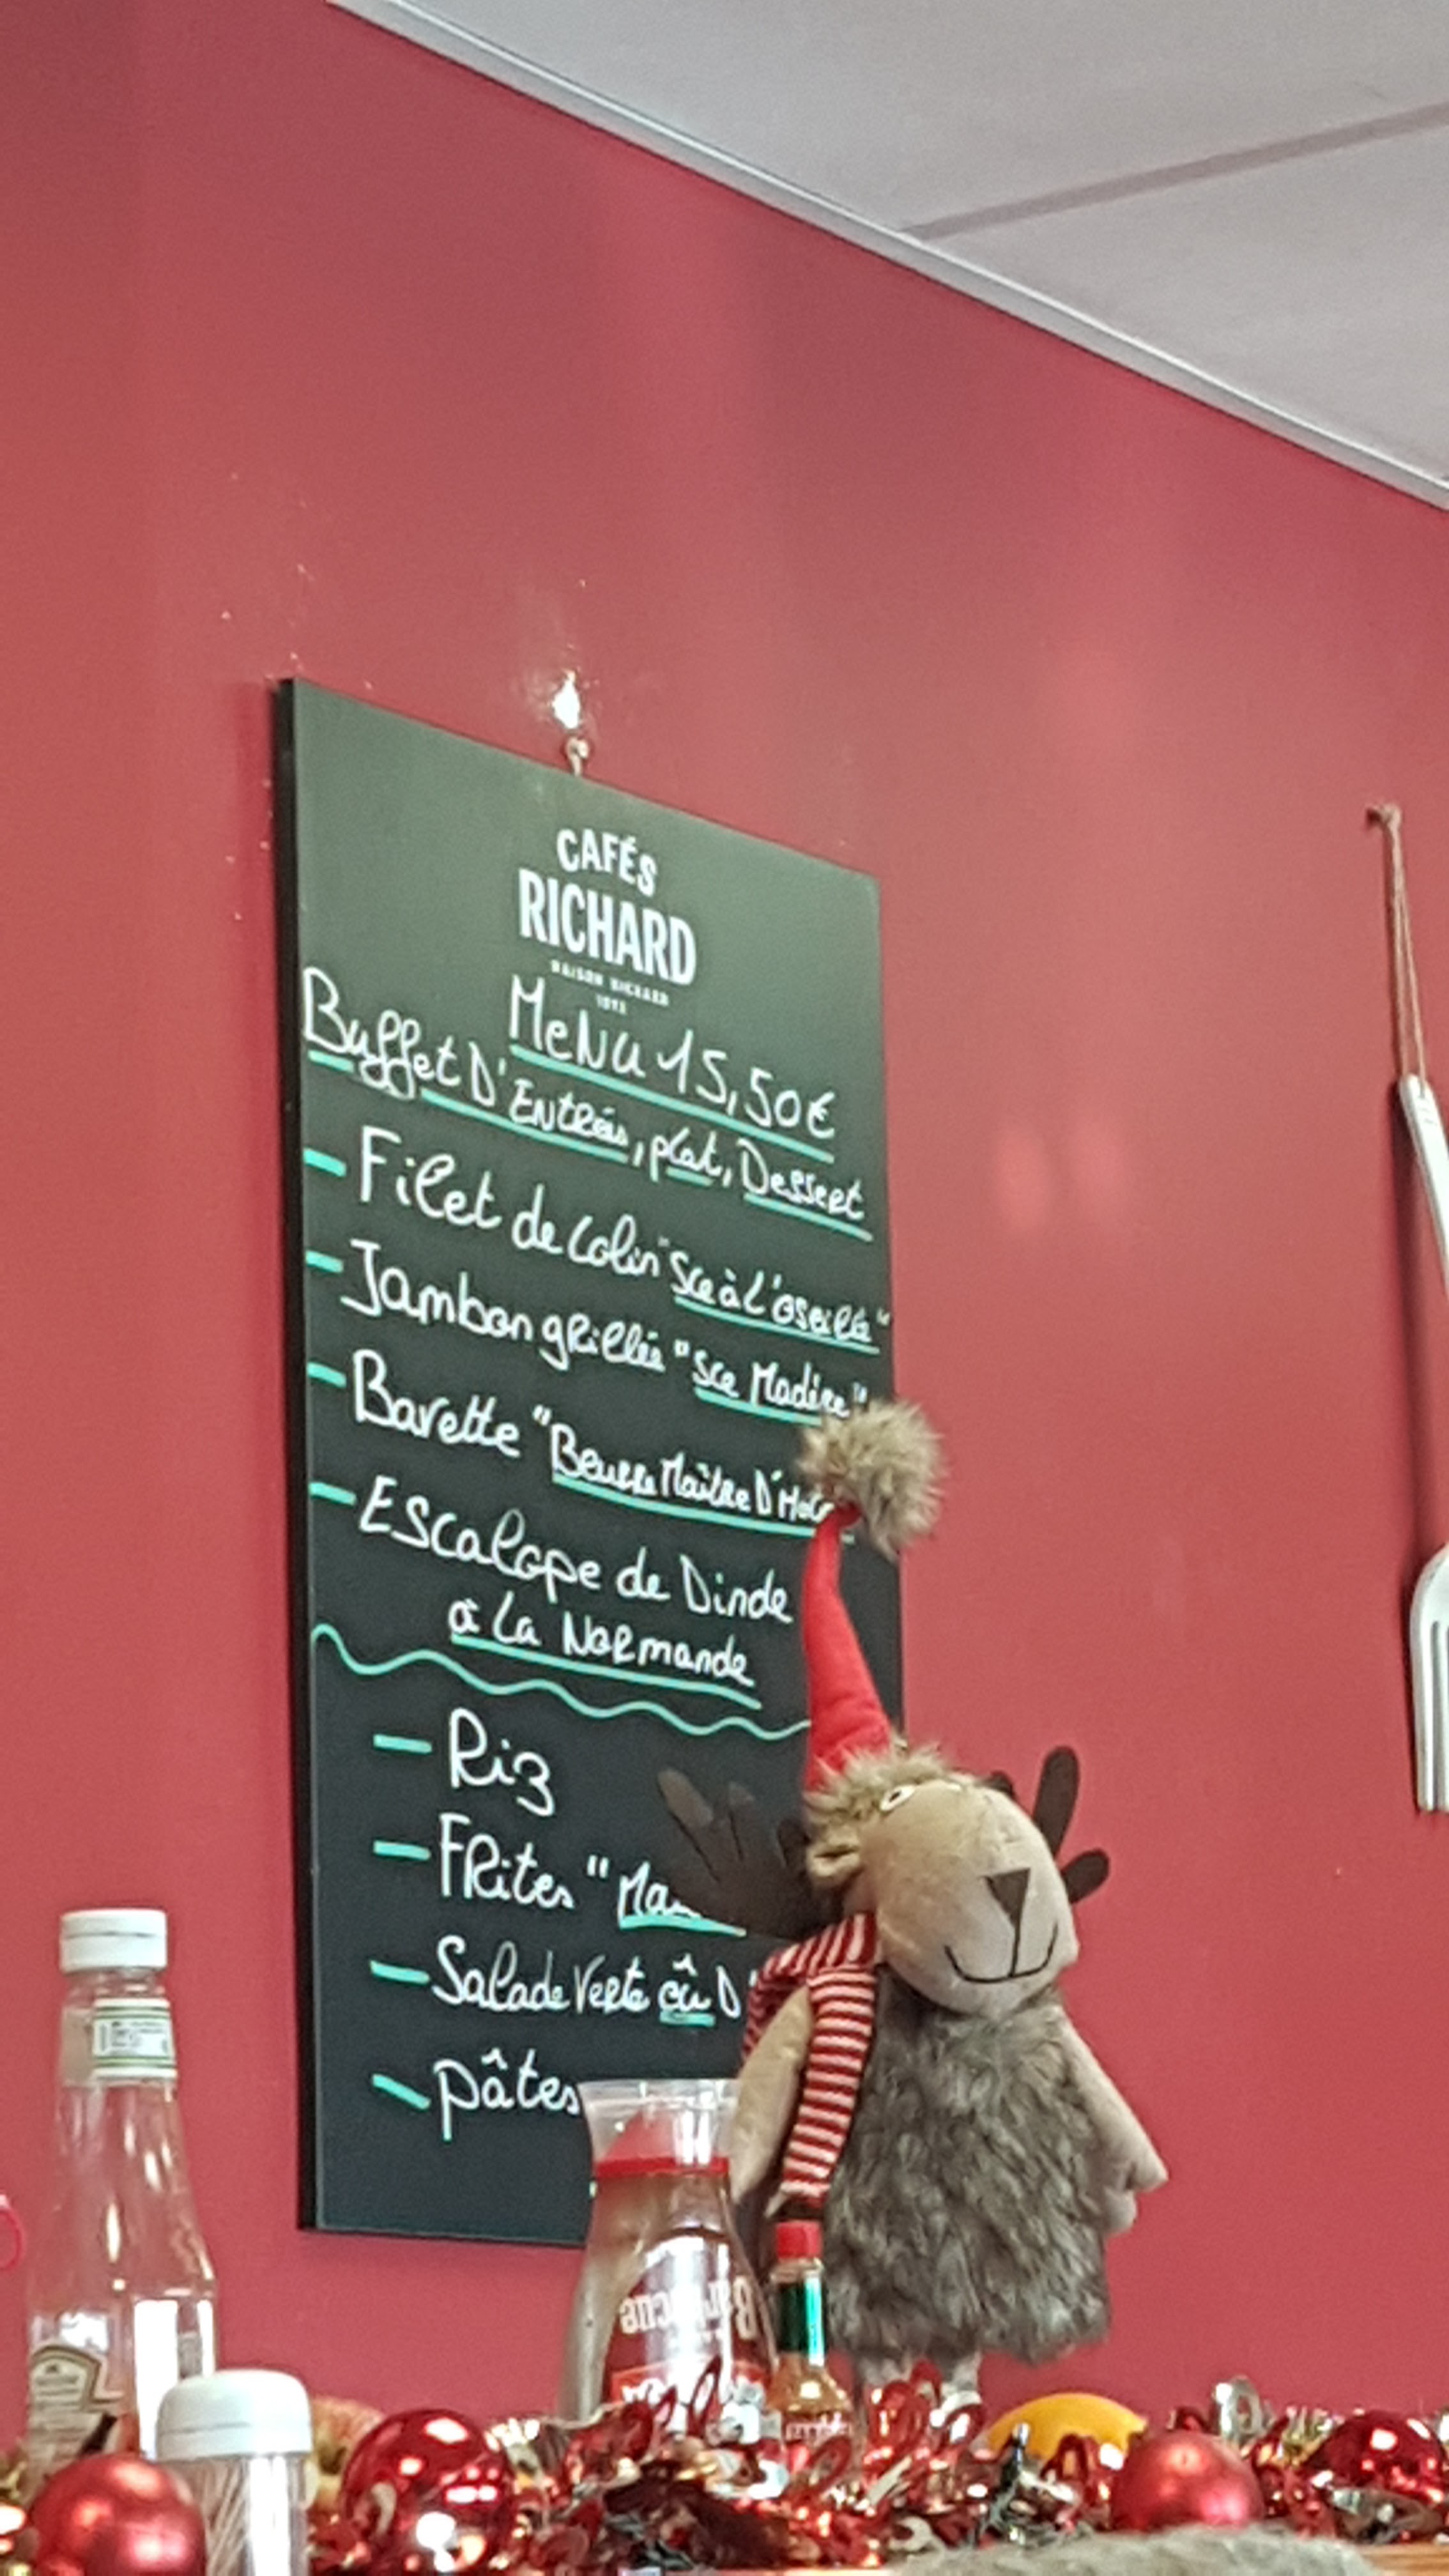 CAFÉS
RICHARD
MAISON RICHARD
MeNu 15,50€
Buffet D'Entrées, plat, Dessert
- Filet de Colin "Sce à L'oseille"
- Jambon grillée "Sce Madère"
- Bavette "Beurre Maître D'Hot
- Escalope de Dinde
à La Normande
- Riz
- FRites "Ma
- Salade Verte où D'
- pâtes
Barbecue